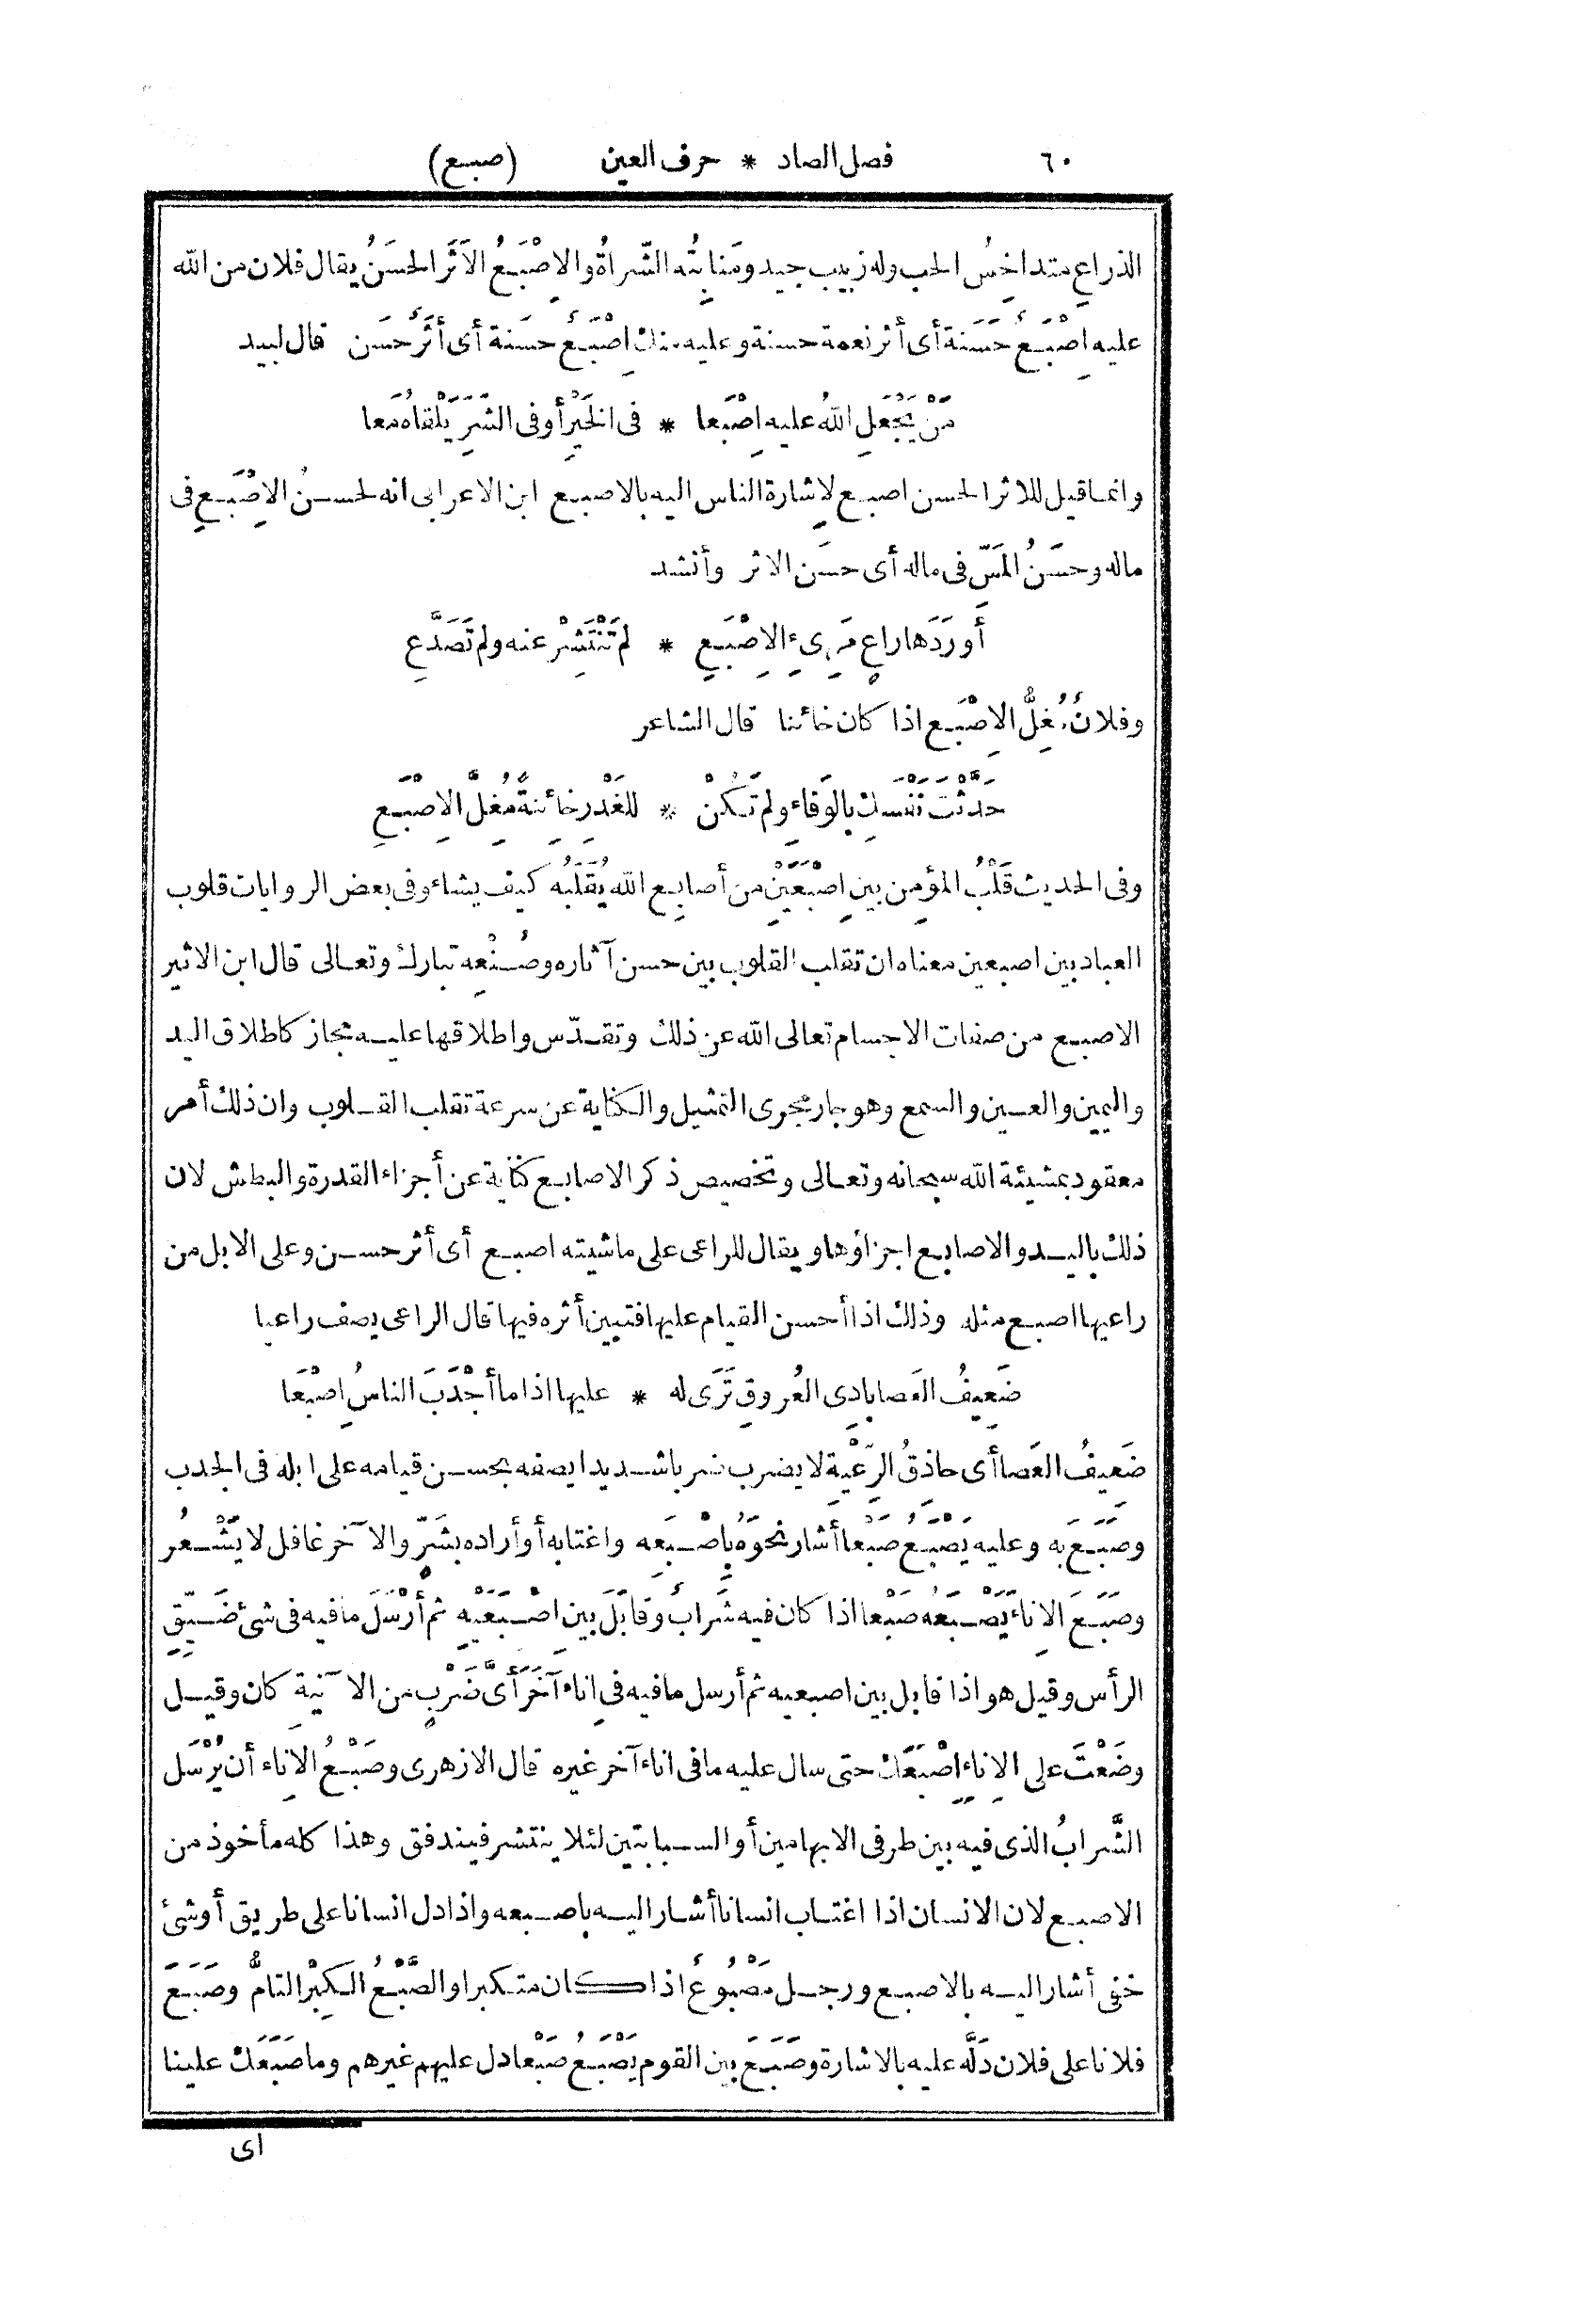 ٦٠ فصل الصاد * حرف العين (صبع)
الذراعِ متداخِسُ الحب وله زبيب جيد ومَنابِتُه الشَّراةُ والاِصْبَعُ الاَثَر الحسَنُ يقال فلان من الله
عليه اِصْبَعُ حَسَنَة أى أثر نعمة حسنة وعليه منك اِصْبَعُ حسَنة أى أثَرُ حسَن قال لبيد
مَنْ يَجْعَلِ اللهُ عليه اِصْبَعا * فى الخَيْرِ أو فى الشَّرِ يَلْقاهُ مَعا
وانما قيل للاثر الحسن اصبع لاِشارة الناس اليه بالاصبع ابن الاعرابى انه لحسنُ الاِصْبَعِ فى
ماله وحسَنُ المَسّ فى ماله أى حسَن الاثر وأنشد
أَورَدَها راعٍ مَرِىءِ الاِصْبَعِ * لم تَنْتَشِرْ عنه ولم تَصَدَّعِ
وفلانُ مُغِلُّ الاِصْبَع اذا كان خائنا قال الشاعر
حَدَّثْتَ نَفْسَك بالوَفاءِ ولم تَكُنْ * للغَدْرِ خائِنةً مُغِلَّ الاِصْبَعِ
وفى الحديث قَلْبُ المؤمِنِ بينِ اِصْبَعَيْنِ من أصابِع الله يُقَلِّبُه كيف يشاء وفى بعض الروايات قلوب
العباد بين اصبعين معناه ان تقلب القلوب بين حسن آثاره وصُنْعِه تبارك وتعالى قال ابن الاثير
الاصبع من صفات الاجسام تعالى الله عن ذلك وتقدّس واطلاقها عليه مجاز كاطلاق اليد
واليمين والعين والسمع وهو جار مجرى التمثيل والكناية عن سرعة تقلب القلوب وان ذلك أمر
معقود بمشيئة الله سبحانه وتعالى وتخصيص ذكر الاصابع كناية عن أجزاء القدرة والبطش لان
ذلك باليد والاصابع اجزاؤها ويقال للراعى على ماشيته اصبع أى أثر حسن وعلى الابل من
راعيها اصبع مثله وذلك اذا أحسن القيام عليها فتبين أثره فيها قال الراعى يصف راعيا
ضَعِيفُ العَصا بادِى العُروقِ تَرَى له * عليها اذا ما أَجْدَبَ الناسُ اِصْبَعَا
ضَعيفُ العَصا أى حاذقُ الرَّعْيِة لا يضرب ضربا شديدا يصفه بحسن قيامه على ابله فى الجدب
وصَبَعَ به وعليه يَصْبَعُ صَبْعا أشار نحوَهُ بِاصْبَعِه واغتابه أو أراده بشَرٍّ والآخر غافل لا يَشْعُر
وصَبَعَ الاِناءَ يَصْبَعُه صَبْعا اذا كان فيه شَرابُ وقابَلَ بين اِصْبَعَيْهِ ثم أَرْسَلَ ما فيه فى شئ ضَيِّقِ
الرأس وقيل هو اذا قابل بين اصبعيه ثم أرسل ما فيه فى اِناء آخَرَ أَىَّ ضَرْبٍ من الآنِية كان وقيل
وضَعْتَ على الاِناءِ اِصْبَعَك حتى سال عليه ما فى اناء آخر غيره قال الازهرى وصَبْعُ الاِناء أن يُرْسَل
الشَّرابُ الذى فيه بين طرفى الابهامين أو السبابتين لئلا ينتشر فيندفق وهذا كله مأخوذ من
الاصبع لان الانسان اذا اغتاب انسانا أشار اليه باصبعه واذا دل انسانا على طريق أو شئ
خفى أشار اليه بالاصبع ورجل مَصْبُوعُ اذا كان متكبرا والصَّبْعُ الكِبْر التامُّ وصَبَعَ
فلانا على فلان دَلَّه عليه بالاشارة وصَبَعَ بين القوم يَصْبَعُ صَبْعا دل عليهم غيرهم وما صَبَعَك علينا
اى